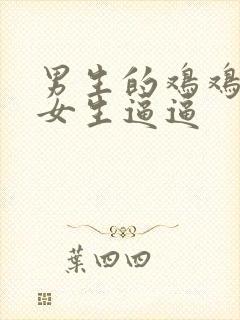 男生的鸡鸡
女生逼逼
葉四四